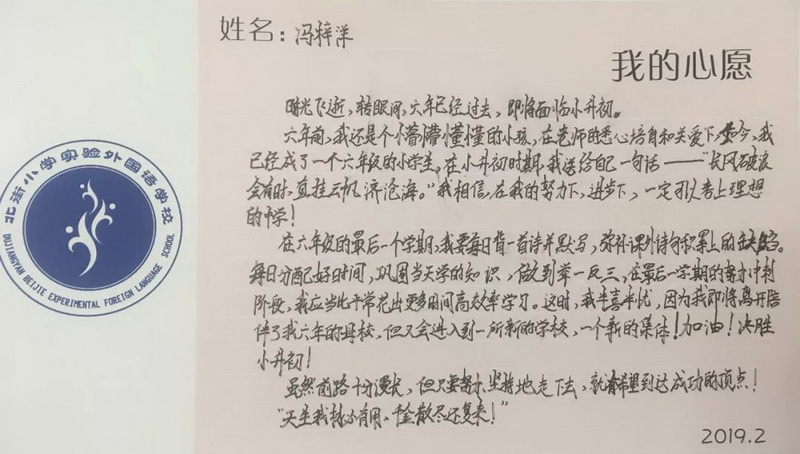 姓名：冯梓洋
我的心愿
时光飞逝，转眼间，六年已经过去，即将面临小升初。
六年前，我还是个懵懵懂懂的小孩，在老师的悉心培育和关爱下，如今，我
已经成了一个六年级的小学生。在小升初时期，我送给自己一句话——“长风破浪
会有时，直挂云帆济沧海。”我相信，在我的努力下，进步下，一定可以考上理想
的中学！
在六年级的最后一个学期，我要每日背一首诗并默写，弥补课外诗句积累上的缺
每日分配好时间，巩固当天学的知识，做到举一反三，在最后一学期的努力冲刺
阶段，我应当比平常花出更多时间高效率学习。这时，我半喜半忧，因为我即将离开陪
伴了我六年的母校，但又会进入到一所新的学校，一个新的集体！加油！决胜
小升初！
虽然前路十分漫长，但只要努力、坚持地走下去，就有希望到达成功的顶点！
“天生我材必有用，千金散尽还复来！”
2019.2
北街小学实验外国语学校
DUJIANGYAN BEIJIE EXPERIMENTAL FOREIGN LANGUAGE SCHOOL